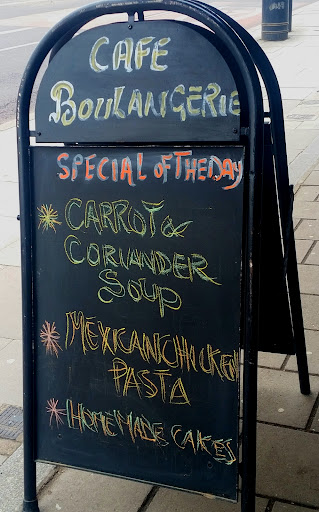 CAFE
BOULANGERIE
SPECIAL OF THE DAY
* CARROT &
CORIANDER
SOUP
* MEXICAN CHICKEN
PASTA
* HOMEMADE CAKES